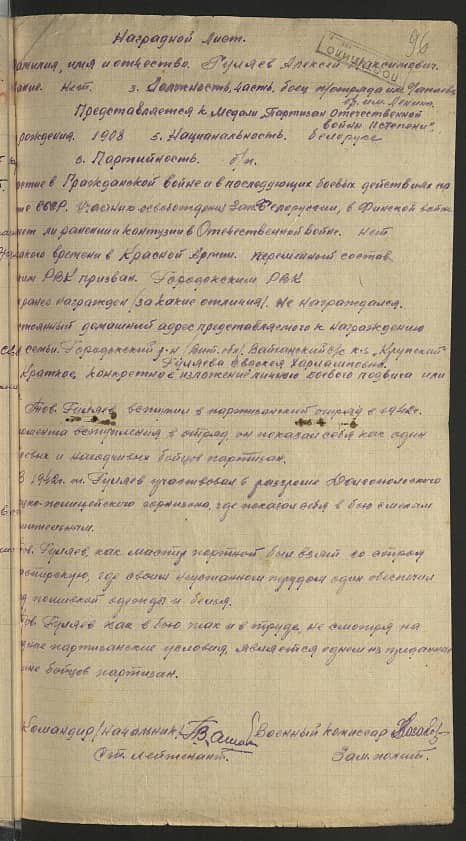 96
Наградной лист.
амилия, имя и отчество. Гуляев Алексей Максимович.
ание. Нет. 3. Должность, часть. боец п/отряда им. Чапаева
бр. им. Ленин.
Представляется к Медали "Партизан Отечественной
войны II степени"
рождения. 1908 5. Национальность. белорус
6. Партийность. б/п.
стие в Гражданской войне и в последующих боевых действиях по
те СССР. Участник освобождения Зап. Белоруссии, в Финской войне
меет ли ранения и контузии в Отечественной войне. Нет
кого времени в Красной Армии. переменный состав
ким РВК призван. Городокским РВК
ранее награжден /за какие отличия/. Не награждался.
стоянный домашний адрес представляемого к награждению
семьи. Городокский р-н /Вит. обл/ Вайханский с/с к-з "Крупский"
Гуляева Евдокия Харламповна.
краткое, конкретное изложение личного боевого подвига или
Тов. Гуляев вступил в партизанский отряд в 1942г.
момента вступления в отряд он показал себя как один
евых и находчивых бойцов партизан.
В 1942г. т. Гуляев участвовал в разгроме
полицейского гарнизона, где показал себя в бою смелым
ительным.
ов. Гуляев, как мастер портной был взят со отром
астерскую, где своим неустанным трудом один обеспечил
д пошивкой одежды и белья.
ов. Гуляев как в бою так и в труде, не смотря на
дные партизанские условия, является одним из преданных
ине бойцов партизан.
Командир /начальник/ Военный комиссар Казаков
Ст. лейтенант. Зам. полит.